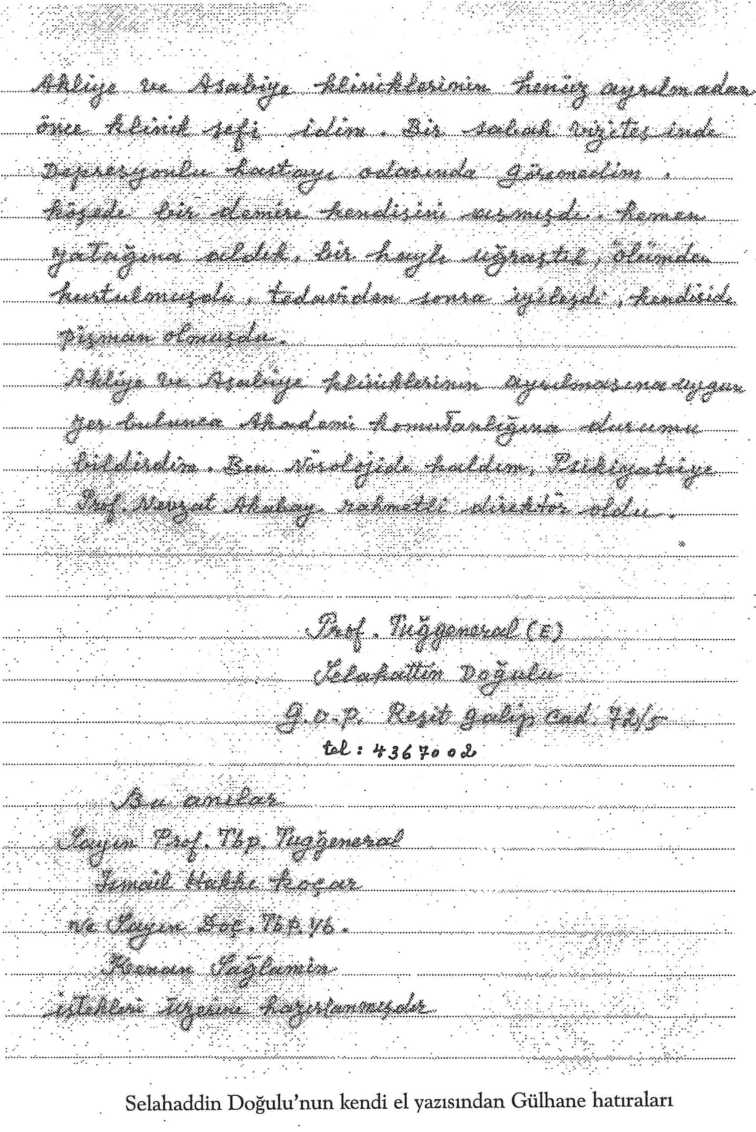 Akliye ve Asabiye kliniklerinin henüz ayrılmadan
önce klinik şefi idim. Bir sabah vizitesinde
Depresyonlu hastayı odasında göremedim.
köşede bir demire kendisini asmışdı. hemen
yatağına aldık, bir haylı uğraştık, ölümden
kurtulmuşdu, tedaviden sonra iyileşdi, kendiside
pişman olmuşdu.
Akliye ve Asabiye kliniklerinin ayrılmasına uygun
yer bulunca Akademi komutanlığına durumu
bildirdim. Ben Nörolojide kaldım, Psikiyatriye
Prof. Nevzat Akabay rahmetli direktör oldu.
Prof. Tuğgeneral (E)
Selahattin Doğulu
G.O.P. Reşit galip Cad. 72/5
tel : 4367002
Bu anılar
Sayın Prof. Tbp. Tuğgeneral
İsmail Hakkı Koçar
ve Sayın Doç. Tbp. Yb.
Kenan Sağlamın
istekleri üzerine hazırlanmışdır
Selahaddin Doğulu'nun kendi el yazısından Gülhane hatıraları